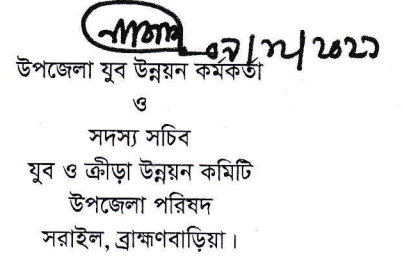 ০৯/১২/২০২১
উপজেলা যুব উন্নয়ন কর্মকর্তা
ও
সদস্য সচিব
যুব ও ক্রীড়া উন্নয়ন কমিটি
উপজেলা পরিষদ
সরাইল, ব্রাহ্মণবাড়িয়া।